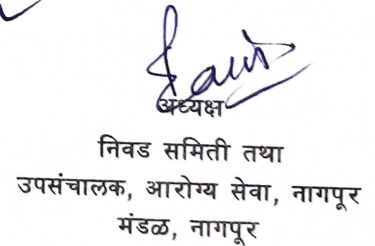 अध्यक्ष
निवड समिती तथा
उपसंचालक, आरोग्य सेवा, नागपूर
मंडळ, नागपूर